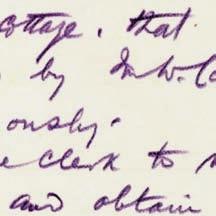 cottage, that
by Mr W. Co
ously.
e clerk to
and obtain